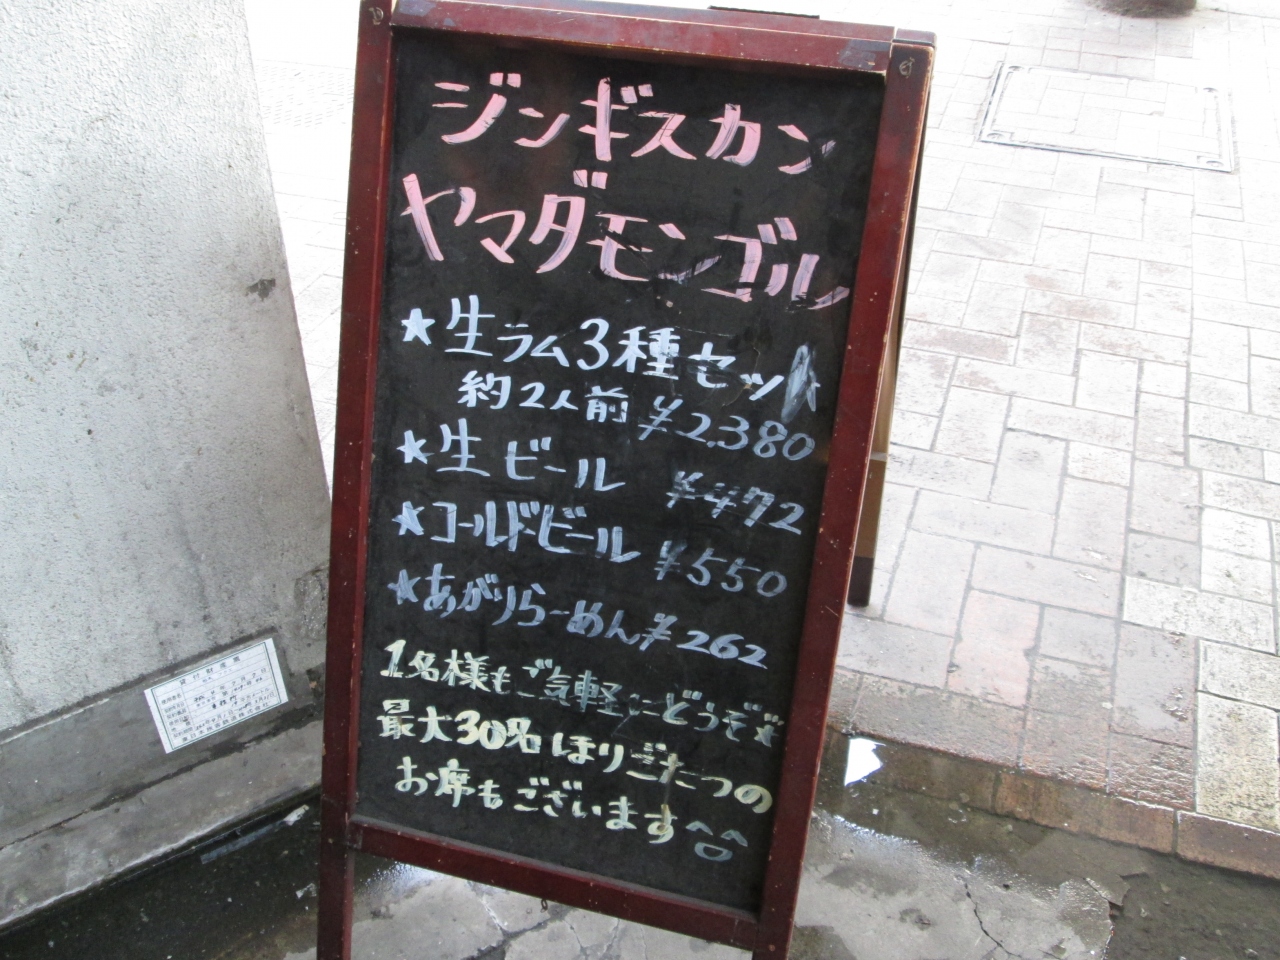 ジンギスカン
ヤマダモンゴル
★生ラム3種セット
約2人前 ¥2,380
★生ビール ¥472
★コールドビール ¥550
★あがりらーめん ¥262
1名様もご気軽にどうぞ★
最大30名ほりごたつの
お席もございます^O^